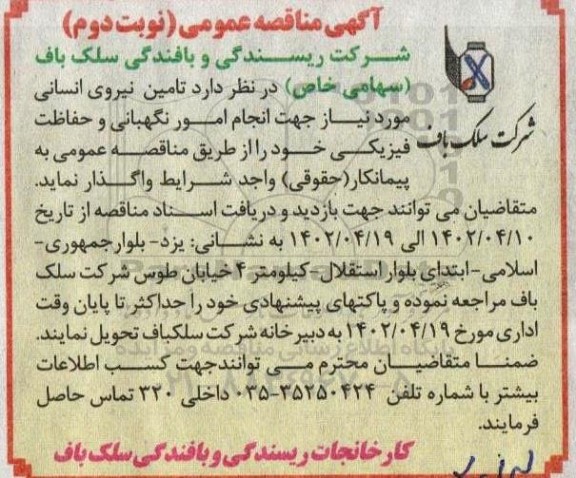 آگهی مناقصه عمومی (نوبت دوم)
شرکت ریسندگی و بافندگی سلک باف
(سهامی خاص) در نظر دارد تامین نیروی انسانی
مورد نیاز جهت انجام امور نگهبانی و حفاظت
فیزیکی خود را از طریق مناقصه عمومی به
پیمانکار(حقوقی) واجد شرایط واگذار نماید.
شرکت سلک باف
متقاضیان می توانند جهت بازدید و دریافت اسناد مناقصه از تاریخ
۱۴۰۲/۰۴/۱۰ الی ۱۴۰۲/۰۴/۱۹ به نشانی: یزد- بلوار جمهوری-
اسلامی-ابتدای بلوار استقلال-کیلومتر ۴ خیابان طوس شرکت سلک
باف مراجعه نموده و پاکتهای پیشنهادی خود را حداکثر تا پایان وقت
اداری مورخ ۱۴۰۲/۰۴/۱۹ به دبیرخانه شرکت سلکباف تحویل نمایند.
ضمنا متقاضیان محترم می توانند جهت کسب اطلاعات
بیشتر با شماره تلفن ۳۵۲۵۰۴۲۴-۰۳۵ داخلی ۳۲۰ تماس حاصل
فرمایند.
کارخانجات ریسندگی و بافندگی سلک باف